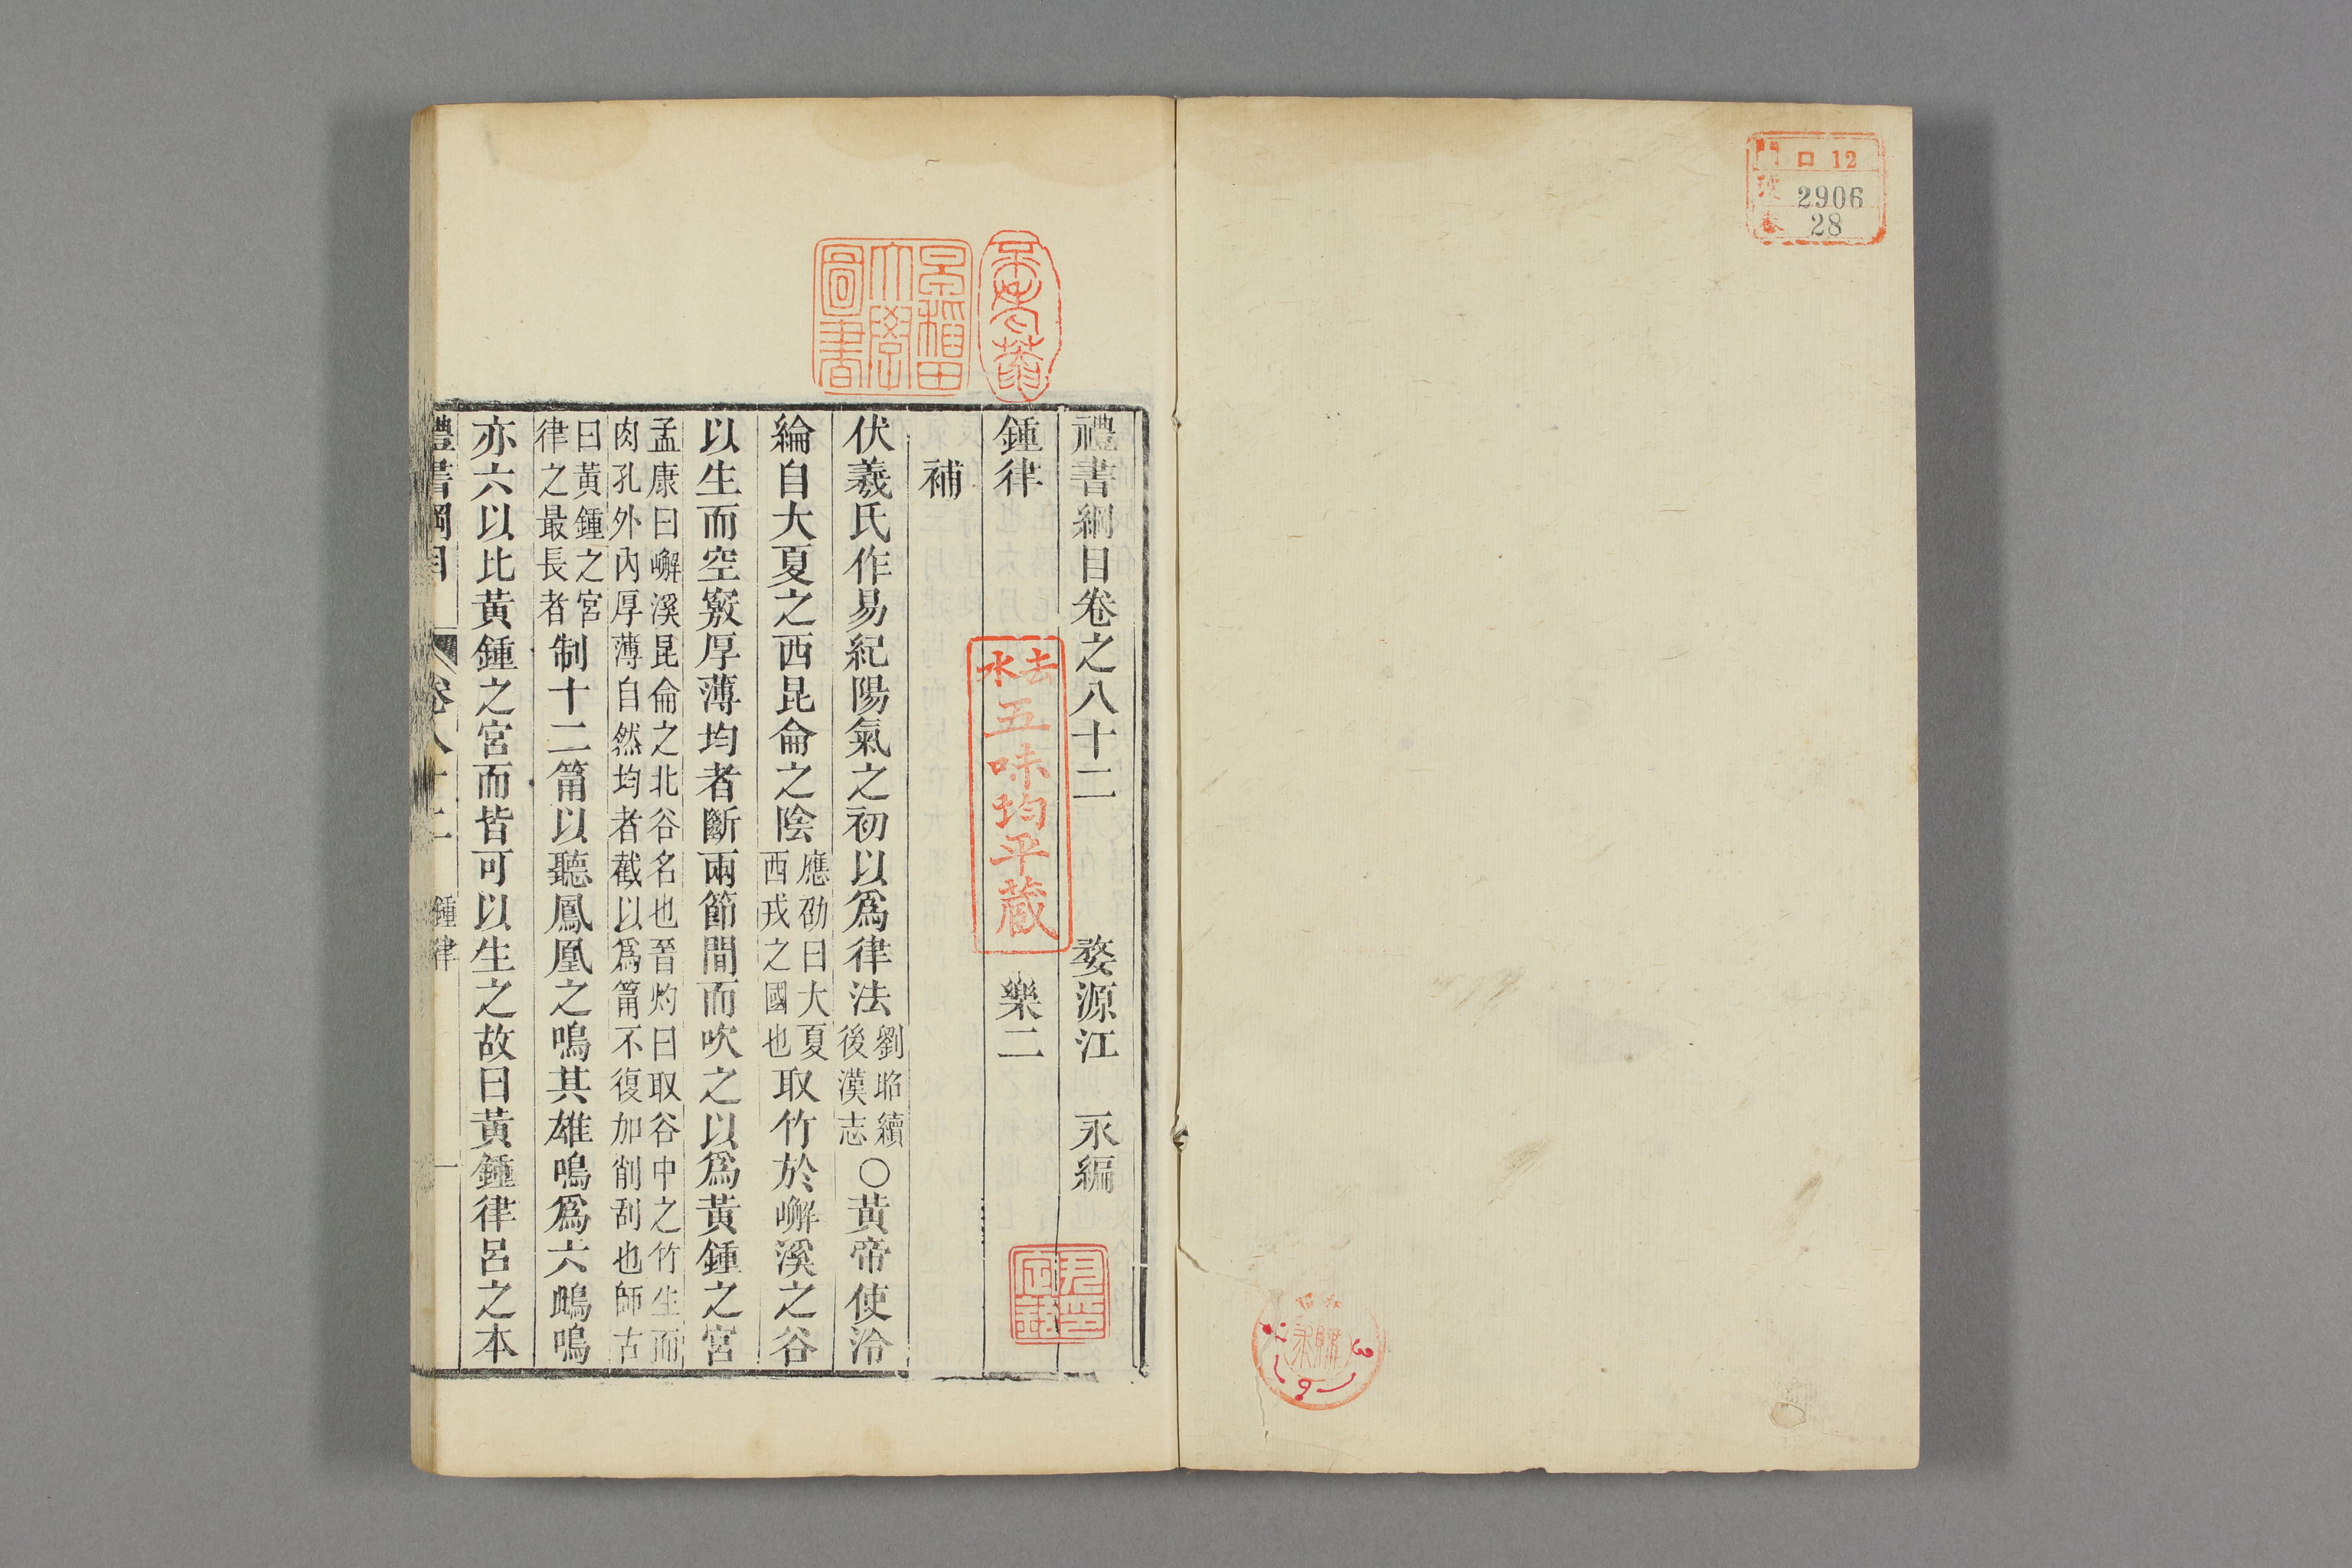 門 口 12
號 2906
卷 28
早稻田大學圖書
去水
五味均平藏
禮書綱目卷之八十二 婺源江 永編
鍾律 樂二
補
伏羲氏作易紀陽氣之初以爲律法劉昭續後漢志○黃帝使泠
綸自大夏之西昆侖之陰應劭曰大夏西戎之國也取竹於嶰溪之谷
以生而空竅厚薄均者斷兩節間而吹之以爲黃鍾之宮
孟康曰嶰溪昆侖之北谷名也晉灼曰取谷中之竹生而
肉孔外內厚薄自然均者截以爲筩不復加削刮也師古
曰黃鍾之宮律之最長者制十二筩以聽鳳凰之鳴其雄鳴爲六鴫鳴
亦六以比黃鍾之宮而皆可以生之故曰黃鍾律呂之本
禮書綱目 卷八十二 鍾律 一